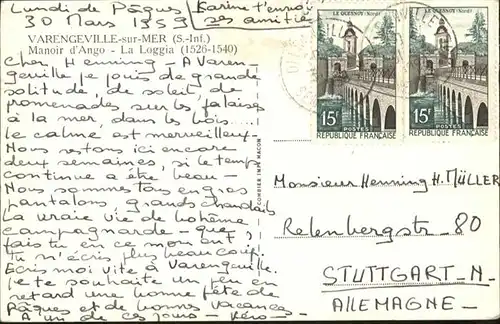 Lundi de Pâques
30 Mars 1959
Karine t'envoie
ses amitiés
VARENGEVILLE-sur-MER (S.-Inf.)
Manoir d'Ango - La Loggia (1526-1540)
Cher Henning - A Varen-
geville je jouis de grande
solitude, de soleil de
promenades sur les falaises
à la mer dans les bois....
le calme est merveilleux.
Nous restons ici encore
deux semaines, si le temps
continue a être beau -
Nous sommes tous en gros
pantalons, grands chandails
La vraie vie de bohème
campagnarde - que
fais tu en ce moment,
Tu n'écris plus beaucoup.
Ecris moi vite à Varengeville.
Je te souhaite un peu en
retard une bonne fête de
Pâques et de bonnes vacances
A un de ces jours -
COMBIER IMP. MACON
LE QUESNOY (Nord)
15F
POSTES
REPUBLIQUE FRANÇAISE
LE QUESNOY (Nord)
15F
POSTES
REPUBLIQUE FRANÇAISE
Monsieur Henning H. MÜLLER
Relenbergstr. 80
STUTTGART-N.
ALLEMAGNE-